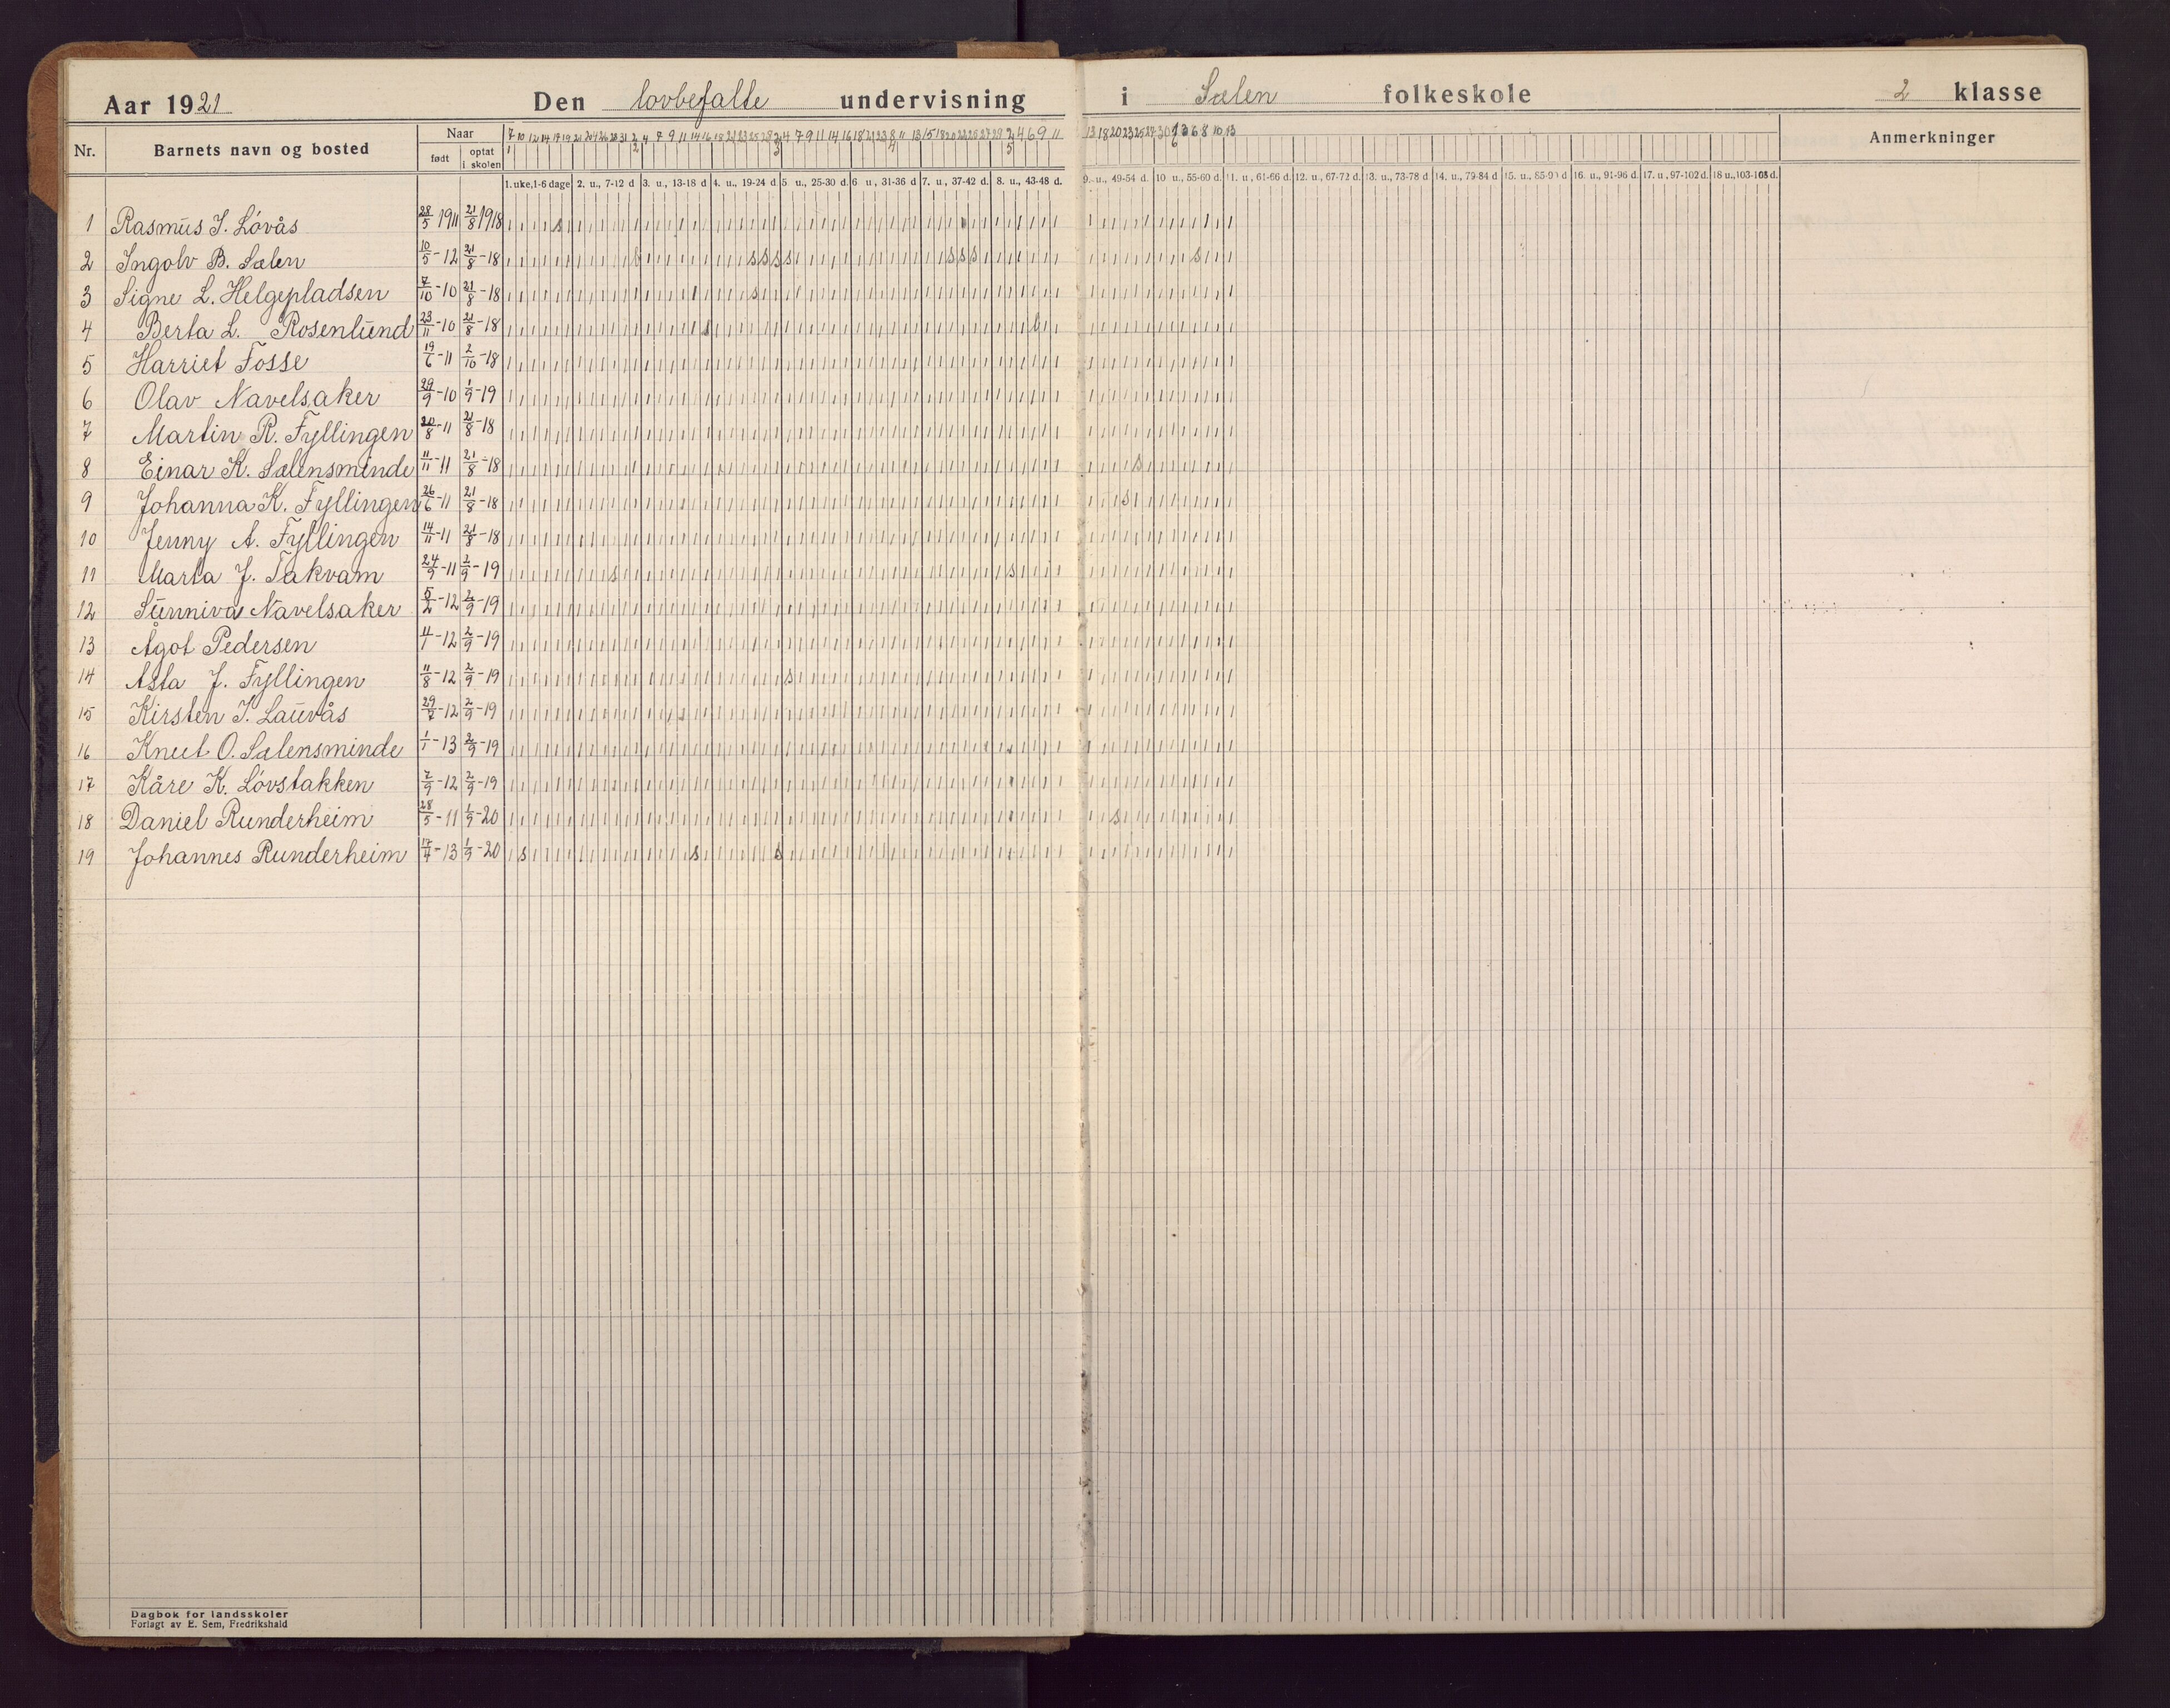 Aar 1921 Den lovbefalte undervisning i Sælen folkeskole 2 klasse
Nr. Barnets navn og bosted Naar født optat i skolen Anmerkninger
1. uke, 1-6 dage 2. u., 7-12 d 3. u., 13-18 d 4. u., 19-24 d. 5 u., 25-30 d. 6 u., 31-36 d 7. u., 37-42 d. 8. u., 43-48 d. 9. u., 49-54 d. 10 u., 55-60 d. 11. u, 61-66 d. 12. u., 67-72 d. 13. u., 73-78 d 14. u., 79-84 d 15. u., 85-90 d 16. u., 91-96 d. 17. u., 97-102 d. 18 u., 103-108 d.
1 Rasmus J. Lövås 28/5-1911 21/8 1918
2 Ingolv B. Sælen 10/5-12 21/8-18
3 Signe L. Helgepladsen 7/10-10 21/8-18
4 Berta L. Rosenlund 23/11-10 21/8-18
5 Harriet Fosse 19/6-11 2/10-18
6 Olav Navelsaker 29/9-10 1/9-19
7 Martin R. Fyllingen 20/8-11 21/8-18
8 Einar K. Sælensminde 11/11-11 21/8-18
9 Johanna K. Fyllingen 26/6-11 21/8-18
10 Jenny A. Fyllingen 14/11-11 21/8-18
11 Marta J. Takvam 24/9-11 2/9-19
12 Sunniva Navelsaker 5/2-12 2/9-19
13 Ågot Pedersen 4/7-12 2/9-19
14 Asta J. Fyllingen 11/8-12 2/9-19
15 Kirsten J. Lauvås 29/7-12 2/9-19
16 Knut O. Sælensminde 1/1-13 2/9-19
17 Kåre K. Lövstakken 2/9-12 2/9-19
18 Daniel Runderheim 28/5-11 1/9-20
19 Johannes Runderheim 17/7-13 1/9-20
Dagbok for landsskoler
Forlagt av E. Sem, Fredrikshald